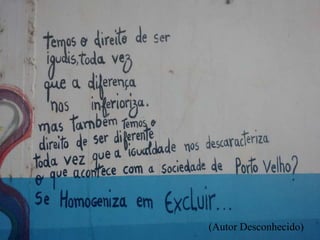 temos o direito de ser
iguais, toda vez
que a diferença
nos inferioriza.
mas também temos o
direito de ser diferente
toda vez que a igualdade nos descaracteriza
o que acontece com a sociedade de Porto Velho?
se Homogeniza em Excluir...
(Autor Desconhecido)